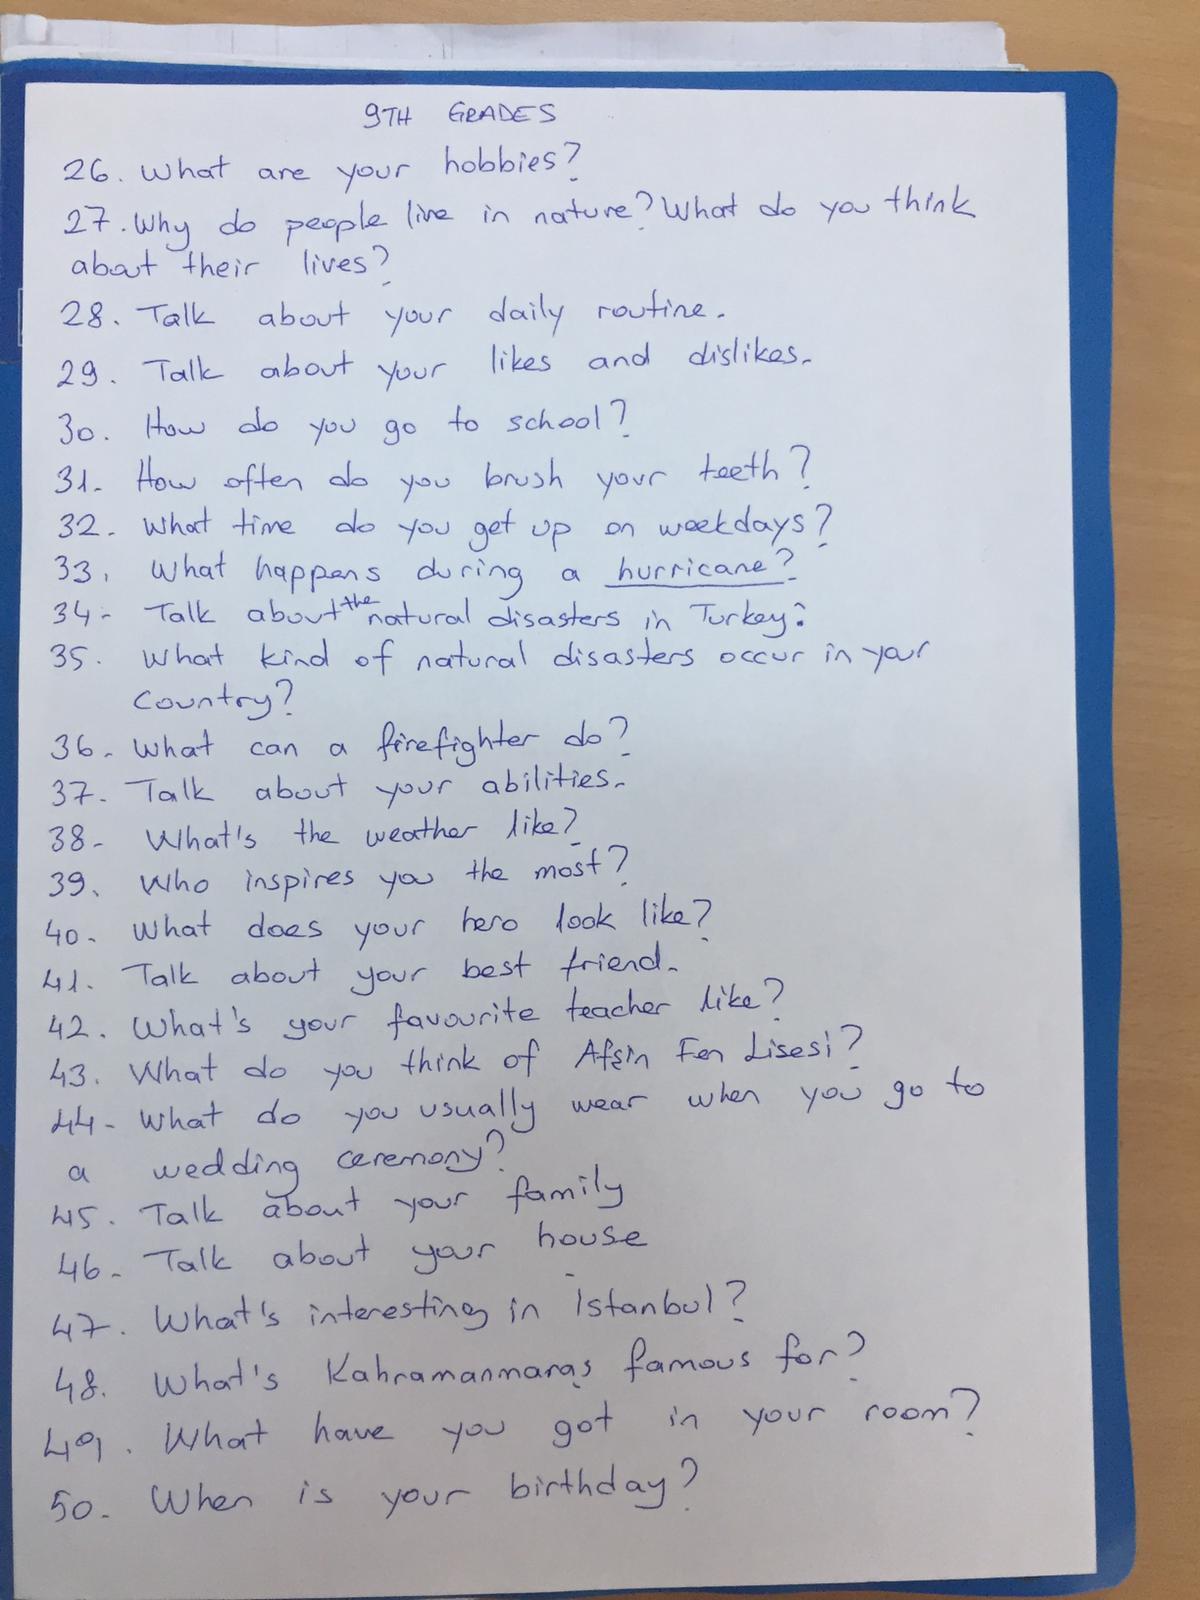 9TH GRADES
26. What are your hobbies?
27. Why do people live in nature? What do you think
about their lives?
28. Talk about your daily routine.
29. Talk about your likes and dislikes.
30. How do you go to school?
31. How often do you brush your teeth?
32. What time do you get up on weekdays?
33. What happens during a hurricane?
34- Talk about the natural disasters in Turkey?
35. What kind of natural disasters occur in your
country?
36- What can a firefighter do?
37. Talk about your abilities.
38- What's the weather like?
39. Who inspires you the most?
40. What does your hero look like?
41. Talk about your best friend.
42. What's your favourite teacher like?
43. What do you think of Afşin Fen Lisesi?
44- What do you usually wear when you go to
a wedding ceremony?
45. Talk about your family
46- Talk about your house
47. What's interesting in İstanbul?
48. What's Kahramanmaraş famous for?
49. What have you got in your room?
50- When is your birthday?